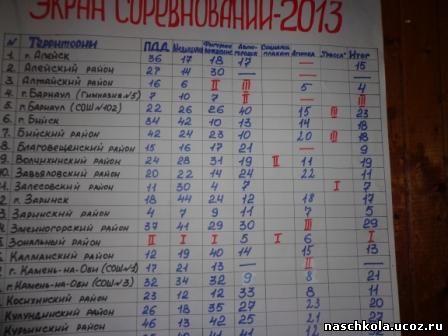 ЭКРАН СОРЕВНОВАНИЙ-2013
№ Территории ПДД Медицина Фигурное вождение Авто-городок Социальн. плакат Агитка "Трасса" Итог
1. г. Алейск 36 17 18 17 — 15
2. Алейский район 27 14 30 — —
3. Алтайский район 16 6 II III 5 4
4. г. Барнаул (Гимназия №5) 7 10 7 II — III
5. г. Барнаул (СОШ №102) 22 26 26 40 15 III 23
6. г. Бийск 34 42 10 13 14 18
7. Бийский район 42 24 23 10 20 III 18
8. Благовещенский район 15 16 17 21 — 9
9. Волчихинский район 24 28 31 19 II 11 19
10. Завьяловский район 20 22 14 24 22 11
Залесовский район 11 30 4 7 I 7
г. Заринск 18 44 24 12 18 17
Заринский район 4 7 9 11 7 5
Змеиногорский район 37 41 29 30 III 29
Зональный район II I I 5 I 6 I
Калманский район 12 19 40 14 15 13
г. Камень-на-Оби (СОШ 17 21 13 — II
г. Камень-на-Оби (СОШ №3) 32 34 32 9 8 21
Косихинский район 23 12 12 33 8 11
Кулундинский район 26 18 35 27 23 20
Курьинский район 46 13 42 25 21 27
naschkola.ucoz.ru